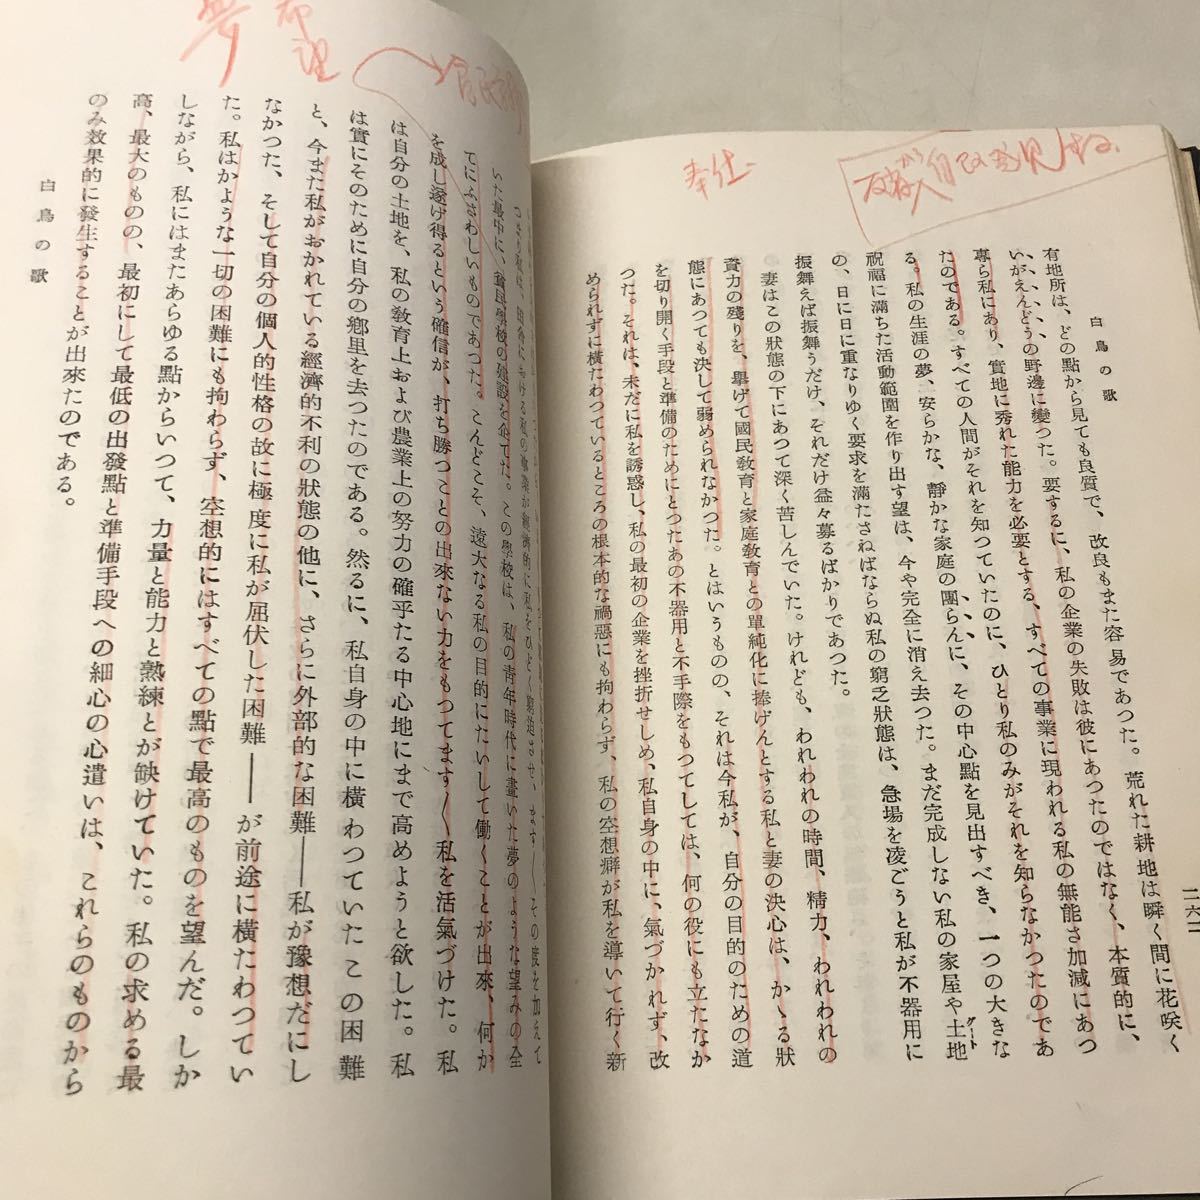 白鳥の歌
二六二
有地所は、どの點から見ても良質で、改良もまた容易であつた。荒れた耕地は瞬く間に花咲く
いがえんどうの野邊に變つた。要するに、私の企業の失敗は彼にあつたのではなく、本質的に、
專ら私にあり、實地に秀れた能力を必要とする、すべての事業に現われる私の無能さ加減にあつ
たのである。すべての人間がそれを知つていたのに、ひとり私のみがそれを知らなかつたのであ
る。私の生涯の夢、安らかな、靜かな家庭の團らんに、その中心點を見出すべき、一つの大きな
祝福に滿ちた活動範圍を作り出す望は、今や完全に消え去つた。まだ完成しない私の家屋や土地
グート
の、日に日に重なりゆく要求を滿たさねばならぬ私の窮乏狀態は、急場を凌ごうと私が不器用に
振舞えば振舞うだけ、それだけ益々募るばかりであつた。
妻はこの狀態の下にあつて深く苦しんでいた。けれども、われわれの時間、精力、われわれの
資力の殘りを、擧げて國民敎育と家庭敎育との單純化に捧げんとする私と妻の決心は、かゝる狀
態にあつても決して弱められなかつた。とはいうものの、それは今私が、自分の目的のための道
を切り開く手段と準備のためにとつたあの不器用と不手際をもつてしては、何の役にも立たなか
つた。それは、未だに私を誘惑し、私の最初の企業を挫折せしめ、私自身の中に、氣づかれず、改
められずに橫たわつているところの根本的な禍惡にも拘わらず、私の空想癖が私を導いて行く新
奉仕
夢
希望
いた最中に、貧民學校の建設を企てた。この學校は、私の靑年時代に畫いた夢のような望みの全
てにふさわしいものであつた。こんどこそ、遠大なる私の目的にたいして働くことが出來、何か
を成し遂げ得るという確信が、打ち勝つことの出來ない力をもつてます〱私を活氣づけた。私
は自分の土地を、私の敎育上および農業上の努力の確乎たる中心地にまで高めようと欲した。私
は實にそのために自分の鄕里を去つたのである。然るに、私自身の中に橫わつていたこの困難
と、今また私がおかれている經濟的不利の狀態の他に、さらに外部的な困難――私が豫想だにし
なかつた、そして自分の個人的性格の故に極度に私が屈伏した困難――が前途に橫たわつてい
た。私はかような一切の困難にも拘わらず、空想的にはすべての點で最高のものを望んだ。しか
しながら、私にはまたあらゆる點からいつて、力量と能力と熟練とが缺けていた。私の求める最
高、最大のものの、最初にして最低の出發點と準備手段への細心の心遣いは、これらのものから
のみ效果的に發生することが出來たのである。
白鳥の歌